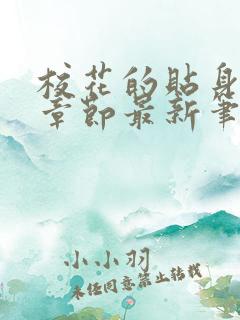 校花的贴身
章节最新笔
小小羽
未经同意禁止转载